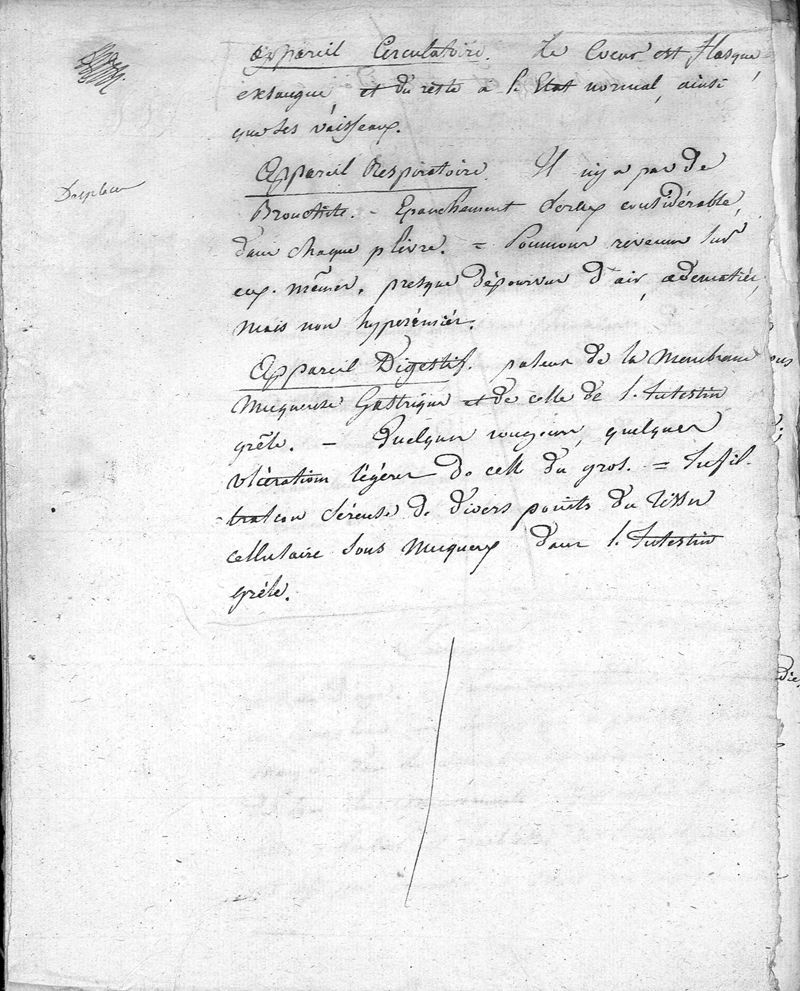 Appareil Circulatoire. Le Coeur est flasque,
exsangue, et du reste à l'Etat normal, ainsi
que les vaisseaux.
Appareil Respiratoire. Il n'y a pas de
Bronchite. - Epanchement séreux considérable,
dans chaque plèvre. = Poumons revenus sur
eux mêmes, presque dépourvus d'air, oedematiés,
mais non hyperémiés.
Appareil Digestif. paleur de la Membrane
Muqueuse Gastrique et de celle de l'Intestin
grêle. - Quelques rougeurs, quelques
ulcérations légères de celle du gros. = Infil-
-tration séreuse de divers points du tissu
cellulaire sous Muqueux dans l'Intestin
grêle.